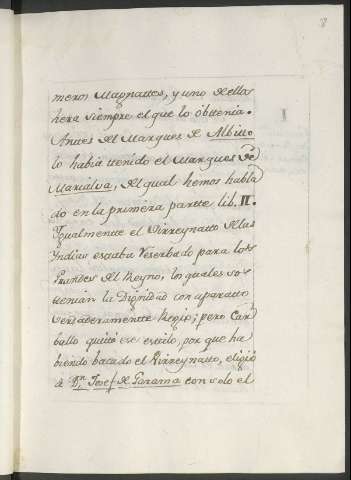 8
meros Magnattes, y uno de ellos
hera siempre el que lo obttenia.
Anttes del Marques de Albitto
lo habia ttenido el Marques de
Marialva, del qual hemos habla
do en la primera partte lib. II.
Ygualmentte el Virreynatto de las
Yndias estaba Reserbado para los
Grandes del Reyno, los quales so=
ttenian la Dignidad con aparatto
verdaderamentte Regio; pero Car
ballo quittó ese estilo, por que ha
biendo bacado el Virreynatto, eligió
á Dn. Josef de Parama con solo el